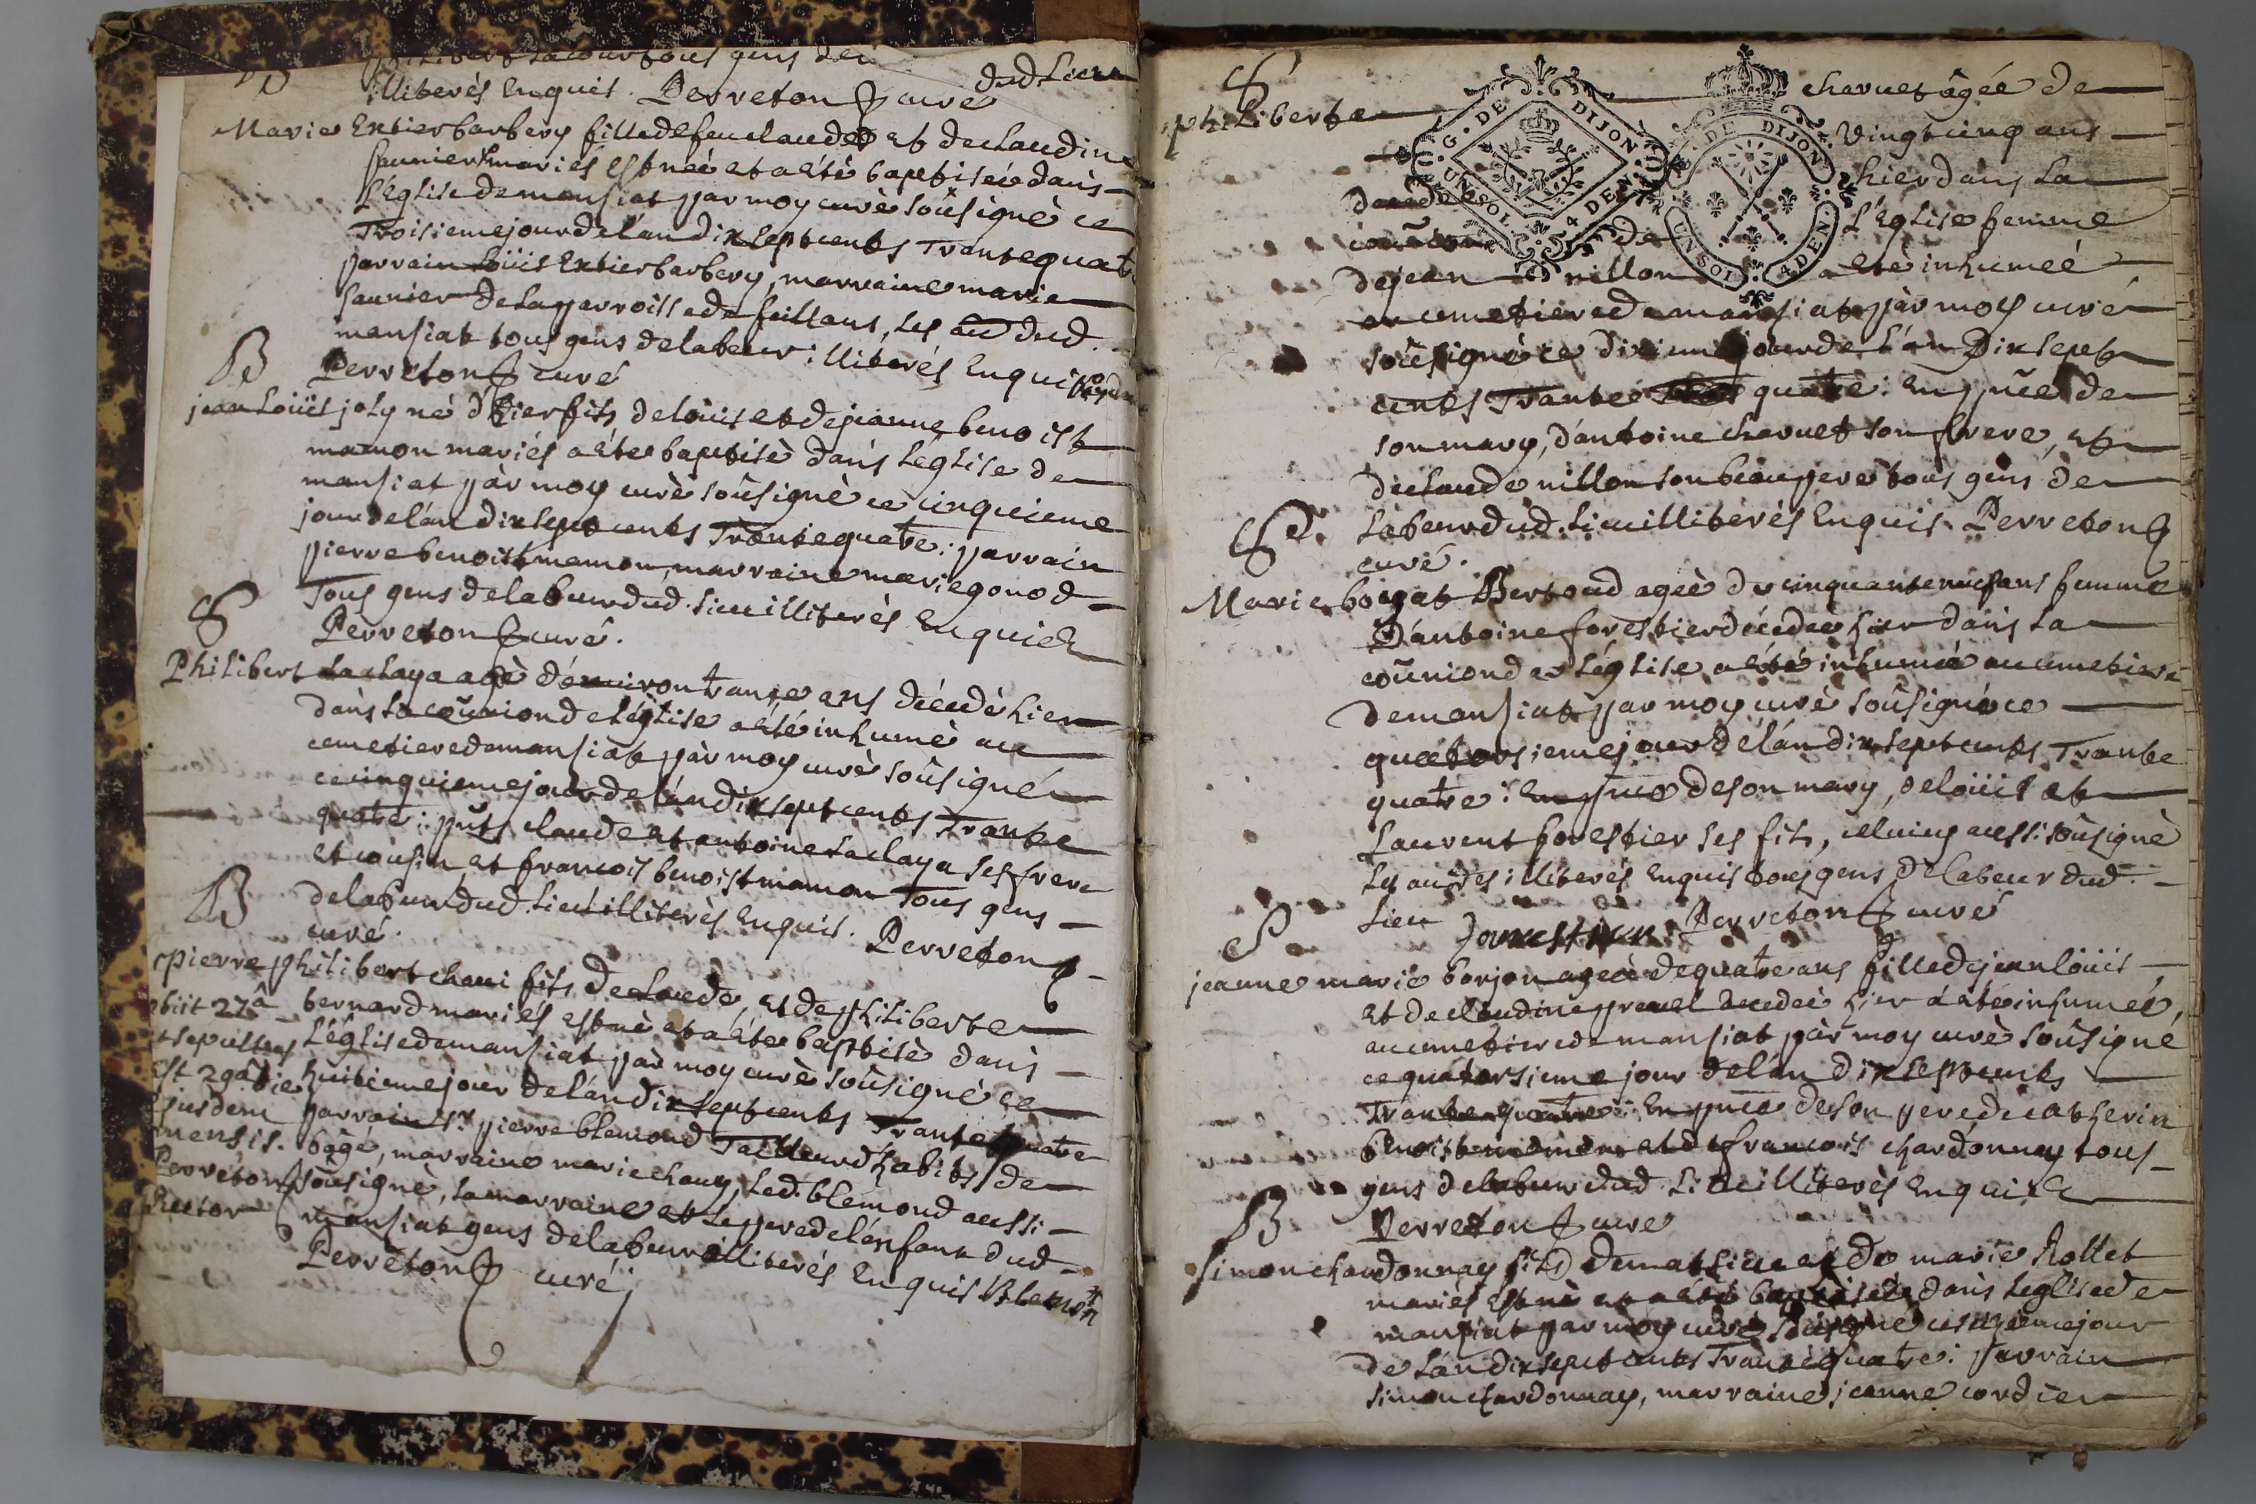 philibert Lacour tous gens de
dud. Lieu
illiterés Enquis. Perreton curé
Marie Extier barbery fille de feu claude et de claudine
saunier mariés est née et a été baptisée dans
L'église de mansiat par moy curé soûsigné ce
Troisieme jour de l'an dix sept cents Trante quatre
parrain Loüis Extier barbery, marraine marie
saunier de la parroisse de feillans, les aũ dud.
mansiat tous gens de labeur illiterés Enquis
B
Perreton curé
jean Loüis joly né d'hier fils de loüis et de jeanne benoist
mamon mariés a été baptisé dans L'église de
mansiat par moy curé soûsigné ce cinquieme
jour de l'an dix sept cents Trante quatre: parrain
pierre benoist mamon, marraine marie gonod
Tous gens de labeur dud. Lieu illiterés Enquis
S
Perreton curé.
Philibert Laclaya agé d'environ trante ans décédé hier
dans la coũnion de L'église a été inhumé au
cemetiere de mansiat par moy curé soûsigné
ce cinquieme jour de l'an dix sept cents Trante
quatre: pñts claude et antoine Laclaya ses frere
et cousin et francois benoist mamon Tous gens
B
de labeur dud. Lieu illiterés Enquis. Perreton
curé.
pierre philibert chani fils de claude, et de philiberte
obiit 27â
bernard mariés est né et a été baptisé dans
et sepultus
L'église de mansiat par moy curé soûsigné ce
est 29a die
huitieme jour de l'an dix sept cents Trante quatre
ejusdem
parrain sr. pierre blemond Tailleur d'habits de
mensis.
bâgé, marraine marie chany, led. blemond aussi
Perreton
soûsigné, la marraine et le pere de l'enfant dud.
Rector
mansiat gens de labeur illiterés Enquis Blemon
Perreton curé
S
philiberte charvet âgée de
G. DE DIJON. UN SOL. 4 DEN.
G. DE DIJON. UN SOL. 4 DEN.
vingt cinq ans
decedée hier dans la
coũnion de L'église femme
de jean nillon a été inhumée
au cemetiere de mansiat par moy curé
soûsigné ce dixieme jour de l'an Dix sept
cents Trante quatre: En pñce de
son mary, d'antoine charvet son frere, et
de claude nillon son beau pere tous gens de
Labeur dud. Lieu illiterés Enquis. Perreton
S
curé.
Marie boyat Bertoud ageé de cinquante neuf ans femme
D'antoine forestier décedée hier dans la
coũnion de L'église a été inhumée au cemetiere
de mansiat par moy curé soûsigné ce
quatorsieme jour de l'an dix sept cents Trante
quatre: En pñce de son mary, de loüis et
Laurent forestier ses fils, celuicy aussi soûsigné
Les autres illiterés Enquis tous gens de labeur dud.
Lieu Perreton curé
S
jeanne marie borjon ageé de quatre ans fille de jean loüis
et de claudine decedeé hier a été inhumée,
au cemetiere de mansiat par moy curé soûsigné
ce quatorsieme jour de l'an dix sept cents
Trante quatre: En pñce de son pere de catherin
benoist mamon et de francois chardonnay tous
gens de labeur dud. Lieu illiterés Enquis
B
Perreton curé
simon chardonnay fils de mathieu et de marie Rollet
mariés est né et a été baptisé dans L'eglise de
mansiat par moy curé soûsigné ce jour
de L'an dix sept cents Trante quatre: parrain
simon chardonnay, marraine jeanne cordier